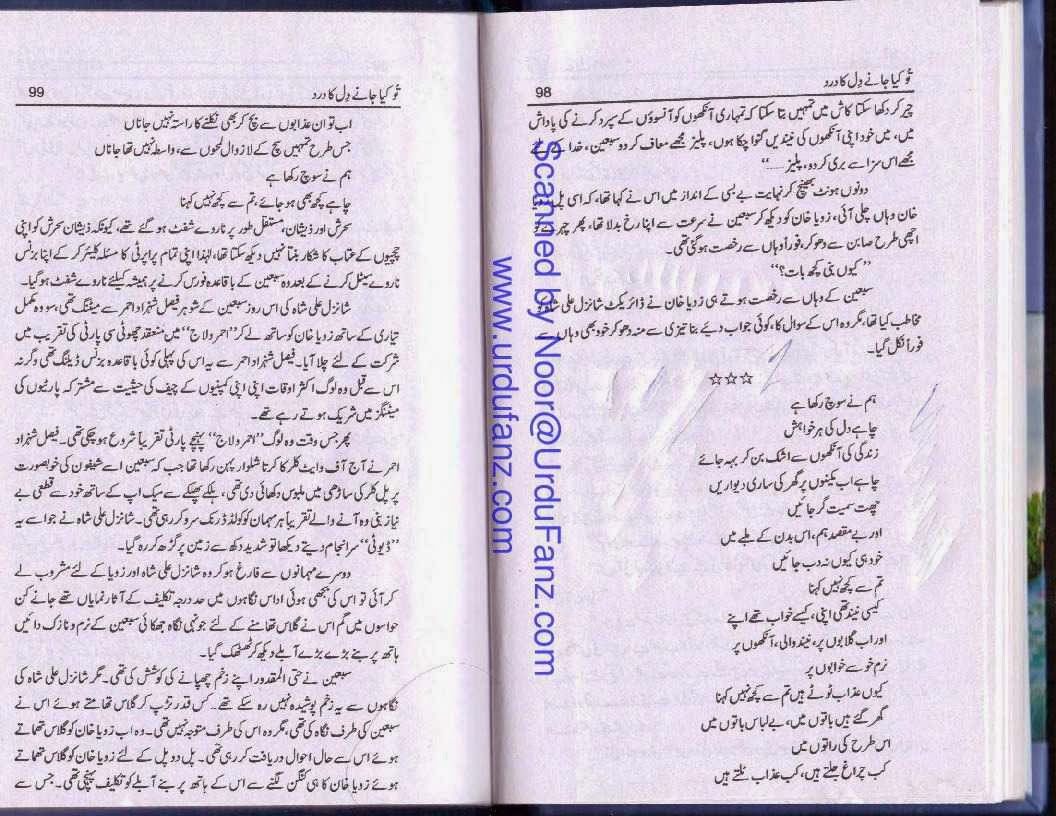 تُو کیا جانے دِل کا درد
98
چیر کر دکھا سکتا کاش میں تمہیں بتا سکتا کہ تمہاری آنکھوں کو آنسوؤں کے سپرد کرنے کی پاداش
میں، میں خود اپنی آنکھوں کی نیندیں گنوا چکا ہوں، پلیز مجھے معاف کر دو سبعین، خدا کے لئے
مجھے اس سزا سے بری کر دو، پلیز......‘‘
دونوں ہونٹ بھینچ کر نہایت بے بسی کے انداز میں اس نے کہا تھا، کہ اسی پل زوبا
خان وہاں چلی آئی، زوبا خان کو دیکھ کر سبعین نے سرعت سے اپنا رخ بدلا تھا، پھر چہرے کو
اچھی طرح صابن سے دھو کر، فوراً وہاں سے رخصت ہو گئی تھی۔
’’کیوں بنی کچھ بات؟‘‘
سبعین کے وہاں سے رخصت ہوتے ہی زوبا خان نے ڈائریکٹ شانزل علی شاہ کو
مخاطب کیا تھا، مگر وہ اس کے سوال کا، کوئی جواب دیئے بنا تیزی سے منہ دھو کر خود بھی وہاں سے
فوراً نکل گیا۔
☆☆☆
ہم نے سوچ رکھا ہے
چاہے دل کی ہر خواہش
زندگی کی آنکھوں سے اشک بن کر بہہ جائے
چاہے اب مکینوں پر گھر کی ساری دیواریں
چھت سمیت گر جائیں
اور بے مقصد ہم، اس بدن کے ملبے میں
خود ہی کیوں نہ دب جائیں
تم سے کچھ نہیں کہنا
کیسی نیند تھی اپنی، کیسے خواب تھے اپنے
اور اب گلابوں پر، نیند والی، آنکھوں پر
نرم خو سے خوابوں پر
کیوں عذاب ٹوٹے ہیں تم سے کچھ نہیں کہنا
گھر گئے ہیں باتوں میں، بے لباس باتوں میں
اس طرح کی راتوں میں
کب چراغ جلتے ہیں، کب عذاب ٹلتے ہیں
Scanned by Noor@UrduFanz.com
www.urdufanz.com
تُو کیا جانے دِل کا درد
99
اب تو ان عذابوں سے بچ کر بھی نکلنے کا راستہ نہیں جاناں
جس طرح تمہیں سچ کے لازوال لمحوں سے، واسطہ نہیں تھا جاناں
ہم نے سوچ رکھا ہے
چاہے کچھ بھی ہو جائے، تم سے کچھ نہیں کہنا
سحرش اور ذیشان، مستقل طور پر ناروے شفٹ ہو گئے تھے، کیونکہ ذیشان سحرش کو اپنی
چچیوں کے عتاب کا شکار بنتا نہیں دیکھ سکتا تھا، لہٰذا اپنی تمام پراپرٹی کا مسئلہ کلیئر کر کے اپنا بزنس
ناروے سیٹل کرنے کے بعد وہ سبعین کے باقاعدہ فورس کرنے پر ہمیشہ کیلئے ناروے شفٹ ہو گیا۔
شانزل علی شاہ کی اس روز سبعین کے شوہر فیصل شہزاد احمر سے میٹنگ تھی، سو وہ مکمل
تیاری کے ساتھ زوبا خان کو ساتھ لے کر ’’احمر ولاج‘‘ میں منعقد چھوٹی سی پارٹی کی تقریب میں
شرکت کے لئے چلا آیا۔ فیصل شہزاد احمر سے یہ اس کی پہلی کوئی باقاعدہ بزنس ڈیلنگ تھی وگرنہ
اس سے قبل وہ لوگ اکثر اوقات اپنی اپنی کمپنیوں کے چیف کی حیثیت سے مشترکہ پارٹیوں کی
میٹنگز میں شریک ہوتے رہے تھے۔
پھر جس وقت وہ لوگ ’’احمر ولاج‘‘ پہنچے پارٹی تقریباً شروع ہو چکی تھی۔ فیصل شہزاد
احمر نے آج آف وائیٹ کلر کا کرتا شلوار پہن رکھا تھا جب کہ سبعین اسے شیفون کی خوبصورت
پرپل کلر کی ساڑھی میں ملبوس دکھائی دی تھی، ہلکے پھلکے سے میک اپ کے ساتھ خود سے قطعی بے
نیاز بنی وہ آنے والے تقریباً ہر مہمان کو کولڈ ڈرنک سرو کر رہی تھی۔ شانزل علی شاہ نے جو اسے یہ
’’ڈیوٹی‘‘ سرانجام دیتے دیکھا تو شدید دکھ سے زمین پر گڑھ کر رہ گیا۔
دوسرے مہمانوں سے فارغ ہو کر وہ شانزل علی شاہ اور زوبا کے لئے مشروب لے
کر آئی تو اس کی بجھی ہوئی اداس نگاہوں میں حد درجہ تکلیف کے آثار نمایاں تھے جانے کن
حواسوں میں گم اس نے گلاس تھامنے کے لئے جونہی نگاہ جھکائی سبعین کے نرم و نازک دائیں
ہاتھ پر بنے بڑے بڑے آبلے دیکھ کر ٹھٹھک گیا۔
سبعین نے حتی المقدور اپنے زخم چھپانے کی کوشش کی تھی۔ مگر شانزل علی شاہ کی
نگاہوں سے یہ زخم پوشیدہ نہیں رہ سکے تھے۔ کس قدر تڑپ کر گلاس تھامتے ہوئے اس نے
سبعین کی طرف نگاہ کی تھی، مگر وہ اس کی طرف متوجہ نہیں تھی۔ وہ اب زوبا خان کو گلاس تھماتے
ہوئے اس سے حال احوال دریافت کر رہی تھی۔ پل دو پل کے لئے زوبا خان کو گلاس تھماتے
ہوئے زوبا خان کا ہی کنگن لگنے سے اس کے ہاتھ پر بنے آبلے کو تکلیف پہنچی تھی۔ جس سے